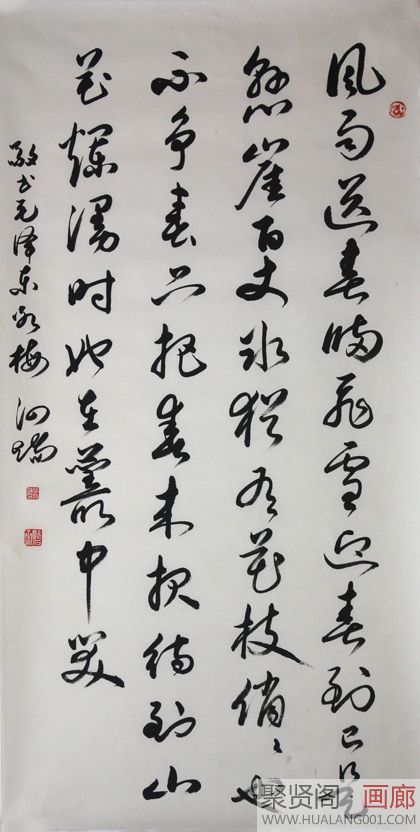 風雨送春归飞雪迎春到已是
懸崖百丈冰犹有花枝俏〻也
不争春只把春来报待到山
花爛漫时她在叢中笑
敬书毛泽东咏梅
聚贤阁 画廊
WWW.HUALANG001.COM